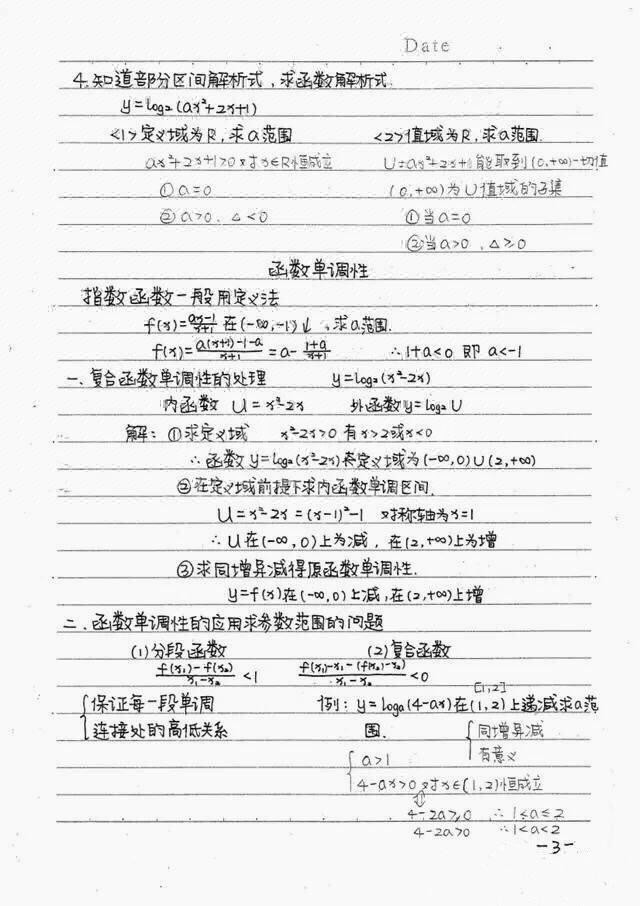 Date
4.知道部分区间解析式，求函数解析式.
y=log₂(ax²+2x+1)
<1>定义域为R，求a范围 <2>值域为R，求a范围.
ax²+2x+1>0对x∈R恒成立 U=ax²+2x+1能取到(0,+∞)一切值
①a=0 (0,+∞)为U值域的子集
②a>0，△<0 ①当a=0
②当a>0，△≥0
函数单调性
指数函数一般用定义法
f(x)=ax-1/x+1 在(-∞,-1)↓，求a范围.
f(x)=a(x+1)-1-a/x+1=a-1+a/x+1 ∴1+a<0 即 a<-1
一.复合函数单调性的处理 y=log₂(x²-2x)
内函数 U=x²-2x 外函数y=log₂U
解：①求定义域 x²-2x>0 有x>2或x<0
∴函数y=log₂(x²-2x)定义域为(-∞,0)∪(2,+∞)
②在定义域前提下求内函数单调区间.
U=x²-2x=(x-1)²-1 对称轴为x=1
∴U在(-∞,0)上为减，在(2,+∞)上为增
③求同增异减得原函数单调性.
y=f(x)在(-∞,0)上减,在(2,+∞)上增
二.函数单调性的应用求参数范围的问题
(1)分段函数 (2)复合函数
f(x₁)-f(x₂)/x₁-x₂<1 f(x₁)-x₁-(f(x₂)-x₂)/x₁-x₂<0
[1,2]
{保证每一段单调 例：y=loga(4-ax)在(1,2)上递减求a范
连接处的高低关系 围. {同增异减
有意义
{a>1
4-ax>0对x∈(1,2)恒成立
⇕
4-2a≥0 ∴1<a≤2
4-2a>0 ∴1<a<2
-3-